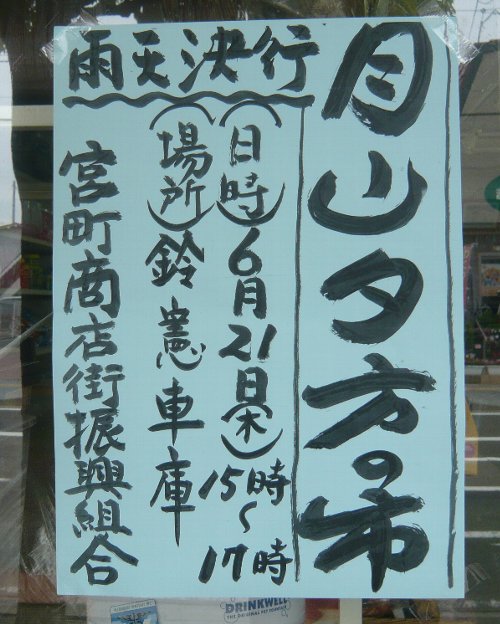 月山夕方の市
(日時)6月21日(木)15時~17時
(場所)鈴憲車庫
雨天決行
宮町商店街振興組合
DRINKWELL